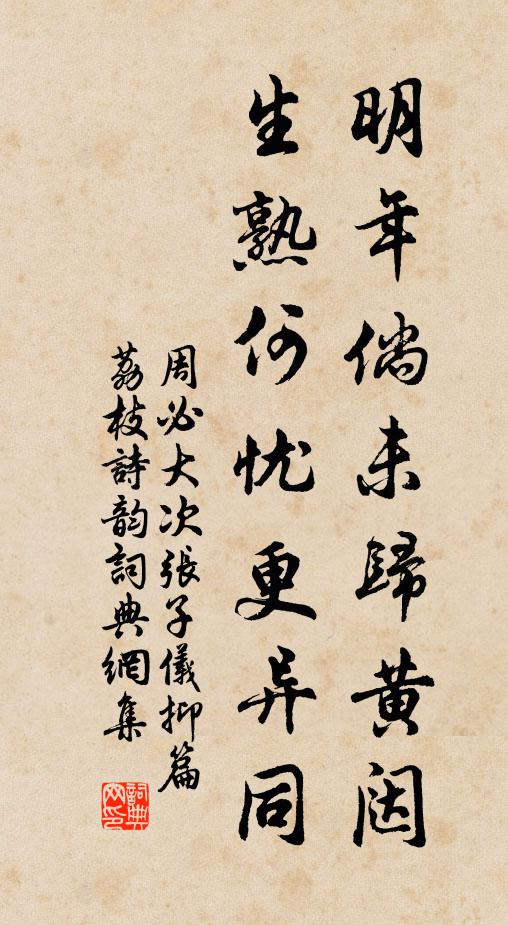 明年倘未歸黄闼
生熟何忧更异同
周必大次張子儀抑篇
荔枝詩韵詞典網集
詞典网印